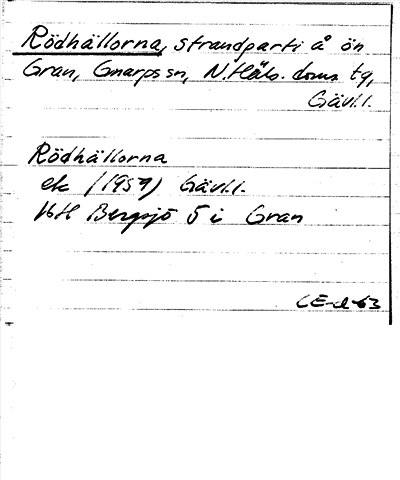 Rödhällorna, strandparti å ön
Gran, Gnarps sn, N. Häls. doms. tg,
Gävl.l.
Rödhällorna
ek (1959) Gävl.l.
Bergsjö 5 i Gran